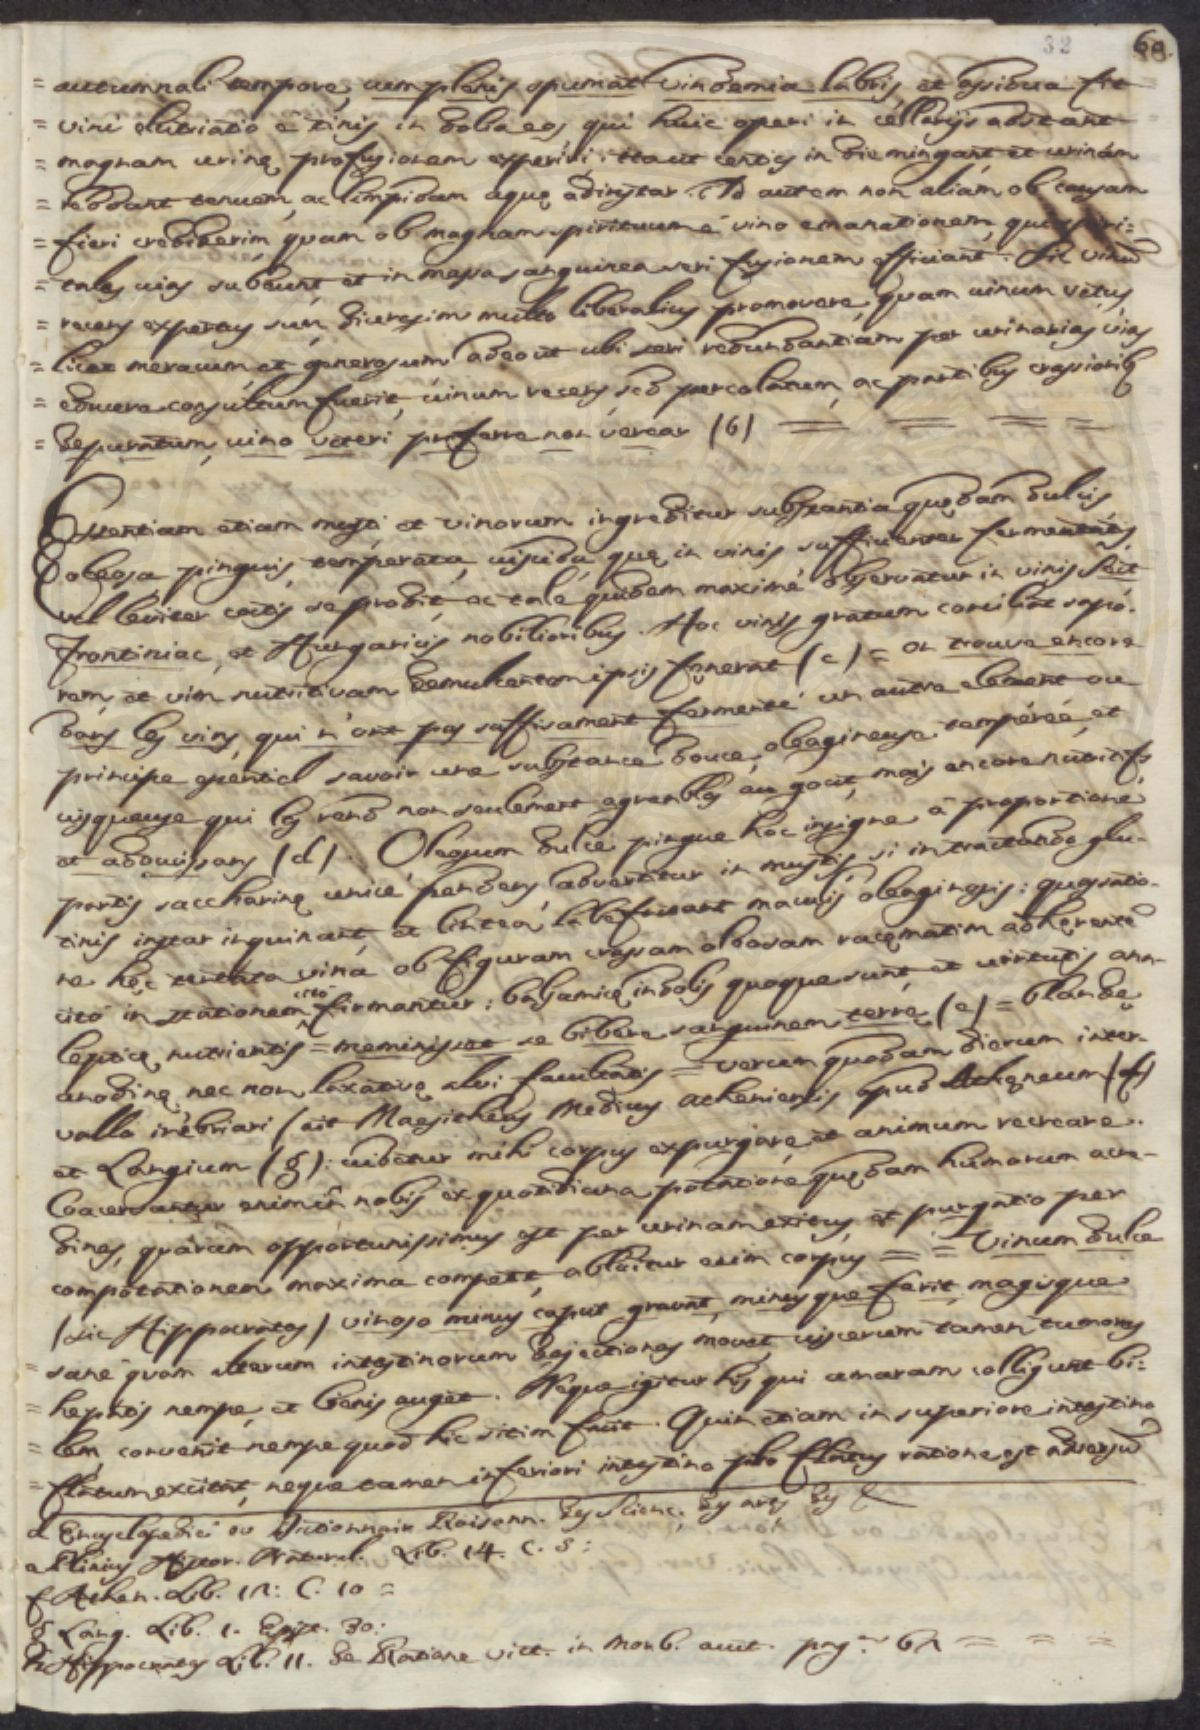 32 68.
= autumnali tempore, cum plenis spumat vindemia labris, et assidua fit
= vini elutriatio e tinis in dolia eos, qui huic operi in cellarijs adstant
= magnam urinę profusionem experiri; itaut centies in die mingant et urinam
= reddant tenuem, ac limpidam aquę ad instar. Id autem non aliam ob causam
= fieri crediderim, quam ob magnam spirituum e vino emanationem, qui spiri=
= tales vias subeunt, et in massa sanguinea seri fusionem efficiant. Sic vinum
= recens expertus sum, diuresim multo liberalius promovere, quam vinum vetus,
= licet meracum et generosum adeout ubi seri redundantiam per urinarias vias
= educere consultum fuerit, vinum recens, sed percolatum, ac partibus crassioribus
= depuratum, vino veteri preferre non verear (b) = = = =
Essentiam etiam musti et vinorum ingreditur substantia quędam dulcis
oleosa pinguis, temperata, viscida, quę in vinis sufficienter fermentatis
vel leviter coctis se prodit, ac tale quidem maximé observatur in vinis
Frontiniac, et Hungaricis nobilioribus. Hoc vinis gratum conciliat sapo-
rem, et vim nutritivam demulcentem ipsis fęnerat (c) = on trouve encore
dans les vins, qui n'ont pas suffisament fermenté un autre element ou
principe essentiel savoir une substance douce, oleagineuse, tempérée, et
visqueuse qui les rend non seulement agreables au gout, mais encore nutritifs,
et adoucissans (d). Oleosum dulce pingue hoc insigne a proportione
partis saccharinę unice pendens, advertitur in mustis, si intractando glu-
tinis instar inquinant, et lintea labefaciant maculis oleaginosis: quassatio-
ne hęc tentata vina ob figuram crassam olbosam racęmatim adhęrente
cito in stationem cito firmantur: balsamicę indolis quoque sunt, et virtutis ana-
lepticę nutrientis = meminisset se bibere sanguinem terrę (e) = blandę
anodinę nec non laxativę alvi faculentis = verum quodam dierum inter-
vallo inebriari (ait Mnesitheus Medicus atheniensis apud Athęneum (f)
et Langium (g): videtur mihi corpus expurgare, et animum recreare.
Coacervantur enim in nobis ex quotidiana potatione quędam humorum acre-
dines, quarum opportunissimus est per urinam exitus, et purgatio per
compotationem maxima competit, abluitur enim corpus = = Vinum dulce
(sic Hippocrates) vinoso minus caput gravat, minusque ferit, magisque
= sane quam alterum intestinorum dejectiones movet, viscerum tamen tumores
= hepatis nempe, et lienis auget. Neque igitur his, qui amaram colligunt bi=
= lem, convenit nempe quod hic sitim facit. Quin etiam in superiore intestino
= flatum excitat, neque tamen inferiori intestino pro flatus ratione est adversum
d Encyclopedie ou Dictionnair Raisonn. des Scienc. des arts des &
e Plinius Histor. Natural. Lib. 14. C. 5:
f Athen. Lib. 11: C. 10 =
g Lang. Lib. 1. Epist. 30:
h Hippocrates Lib. 11. de Ratione vict. in Morb. acut. pag. 61 = = =